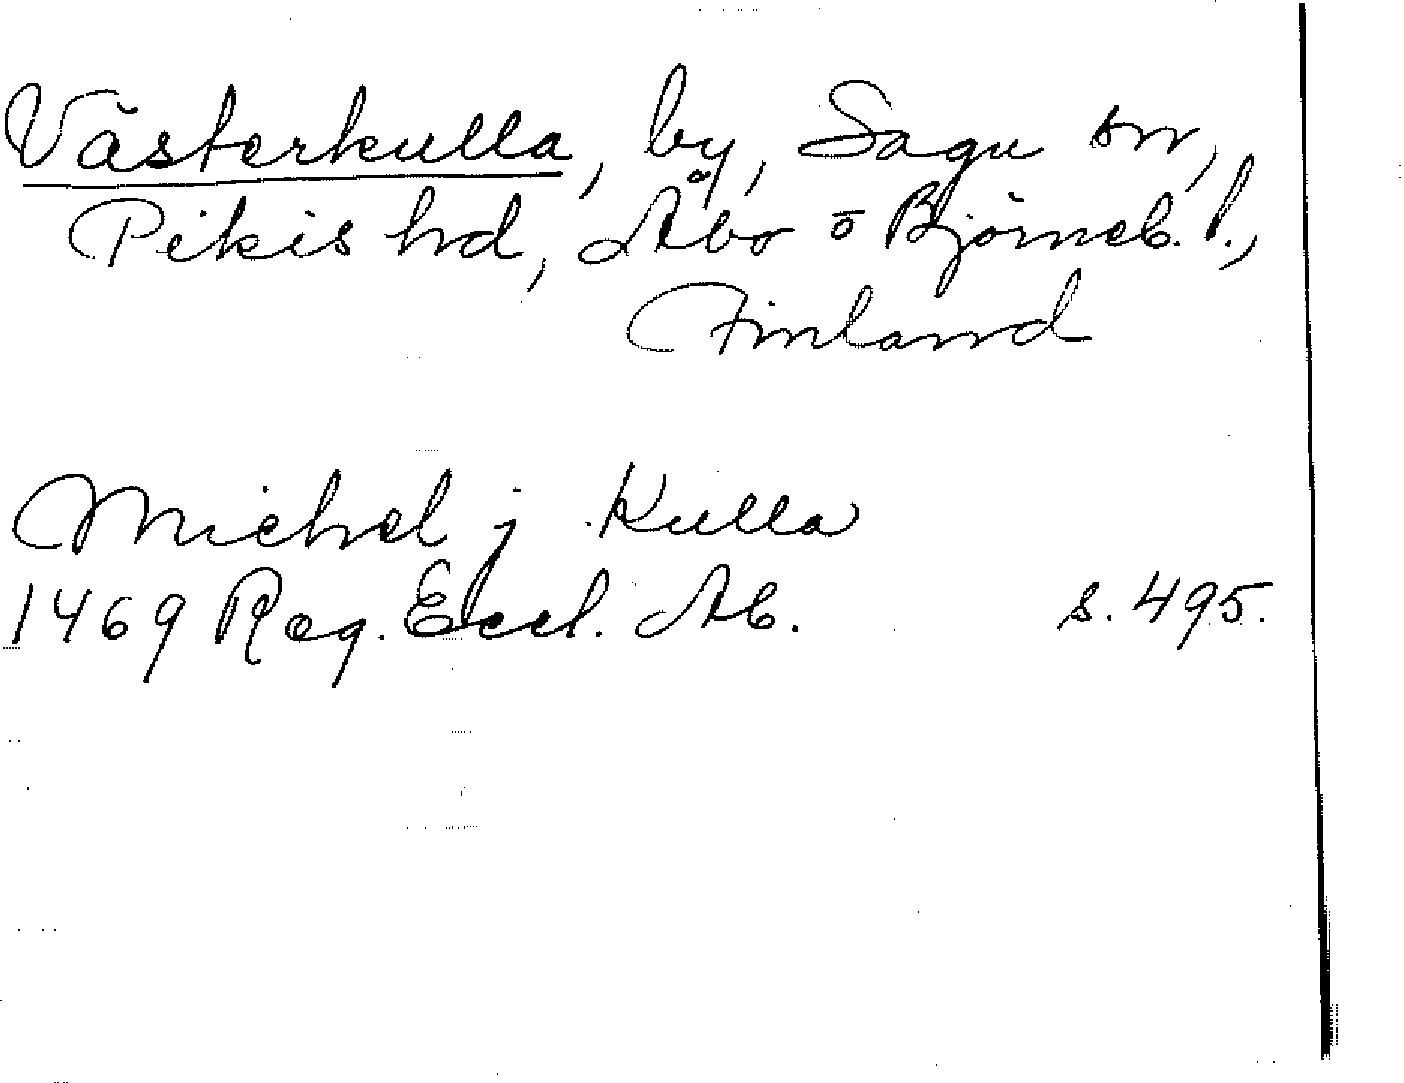 Västerkulla, by, Sagu sn,
Pikis hd, Åbo o Björneb. l.,
Finland
Michel j Kulla
1469 Reg. Eccl. Ab. s. 495.